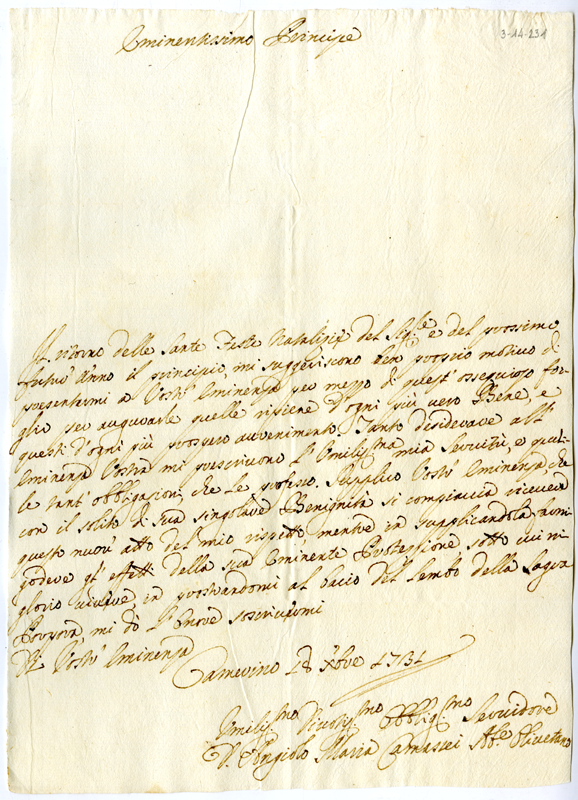 3-14-231
Eminentissimo Principe
Il ritorno delle Sante Feste Natalizie del Sig.re e del prossimo
futur'Anno il principio, mi suggeriscono ben proprio motivo di
presentarmi a Vostr' Eminenza per mezzo di quest' ossequioso fo-
glio per augurarle quelle ripiene d'ogni più vero Bene, e
questi d'ogni più prospero avvenimento. Tanto desiderare all'
Eminenza Vostra mi prescrivono l'Umiliss.ma mia Servitù, e quel-
le tant' obbligazioni, che Le professo. Supplico Vostr' Eminenza che
con il solito di sua singolare Benignità si compiaccia ricevere
questo nuov' atto del mio rispetto, mentre in supplicandola, a mi
godere gl' effetti della sua Eminente Protezzione sotto cui mi
glorio vivere, in prostrandomi al bacio del lembo della Sagra
Porpora, mi dò l'onore soscrivermi
Di Vostr' Eminenza
Camerino 18 Xbre 1731
Umiliss.mo Devotiss.mo Obblig.mo Servidore
D. Angiolo Maria Camassei Ab.e Olivetano